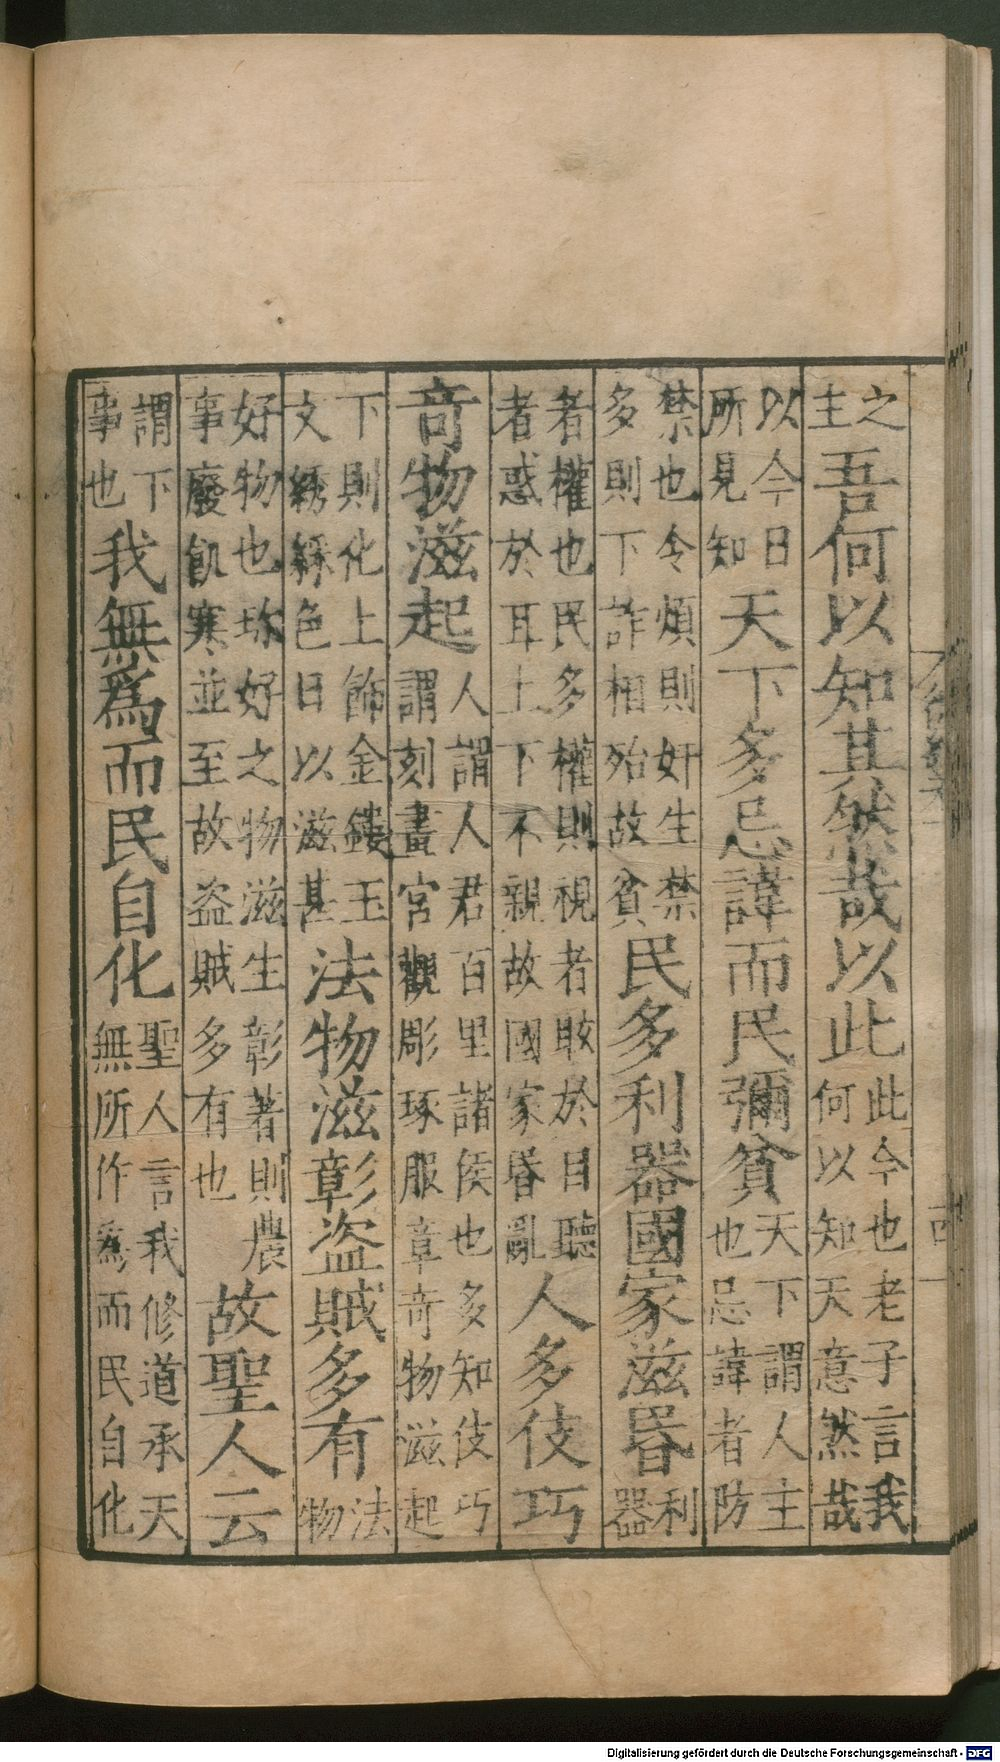 之
主
吾何以知其然哉以此
此今也老子言我
何以知天意然哉
以今日
所見知
天下多忌諱而民彌貧
天下謂人主
也忌諱者防
禁也令煩則奸生禁
多則下詐相殆故貧
民多利器國家滋昬
利
器
者權也民多權則視者眩於目聽
者惑於耳上下不親故國家昬亂
人多伎巧
奇物滋起
人謂人君百里諸侯也多知伎巧
謂刻畫宮觀彫琢服章奇物滋起
下則化上飾金鏤玉
文綉綵色日以滋甚
法物滋彰盜賊多有
法
物
好物也珎好之物滋生彰著則農
事廢飢寒並至故盗賊多有也
故聖人云
謂下
事也
我無爲而民自化
聖人言我修道承天
無所作爲而民自化
Digitalisierung gefördert durch die Deutsche Forschungsgemeinschaft - DFG